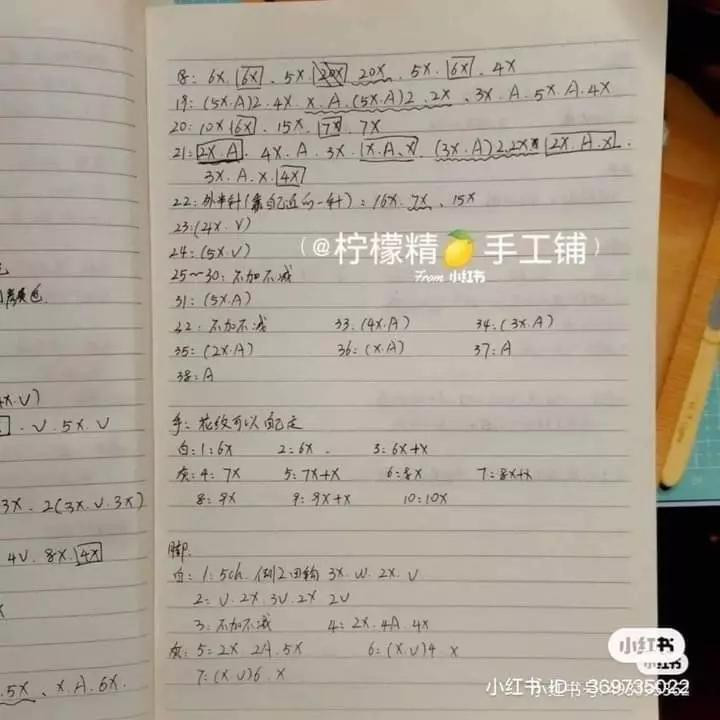 18: 6X.6X.5X.20X 20X.5X.6X.4X
19: (5X.A)2.4X.X.A.(5X.A)2.2X、3X.A.5X.A.4X
20: 10X 6X.15X.7X.7X
21: 2X.A.4X.A.3X.X.A.X.(3X.A)2.2X 2X.A.X.
3X.A.X.4X
22: 外半针(靠自己近的一针): 16X.7X、15X
23:(4X.V)
24:(5X.V)
(@柠檬精🍋手工铺)
From 小红书
25~30: 不加不减
31:(5X.A)
32: 不加不减 33:(4X.A) 34:(3X.A)
35:(2X.A) 36:(X.A) 37:A
38:A
手: 花纹可以自己定
白:1:6X 2:6X. 3:6X+X
灰:4: 7X 5:7X+X 6:8X 7:8X+X
8: 9X 9: 9X+X 10:10X
脚:
白: 1:5ch. 倒2回钩 3X.W.2X.V
2: V.2X.3V.2X 2V
3: 不加不减 4: 2X.4A.4X
灰:5: 2X.2A.5X 6:(X.V)4.X
7:(X.V)6.X
4X.V)
.V.5X.V
3X.2(3X.V.3X)
4V.8X.4X
.5X、X.A.6X.
小红书
小红书
小红书 ID: 369735022